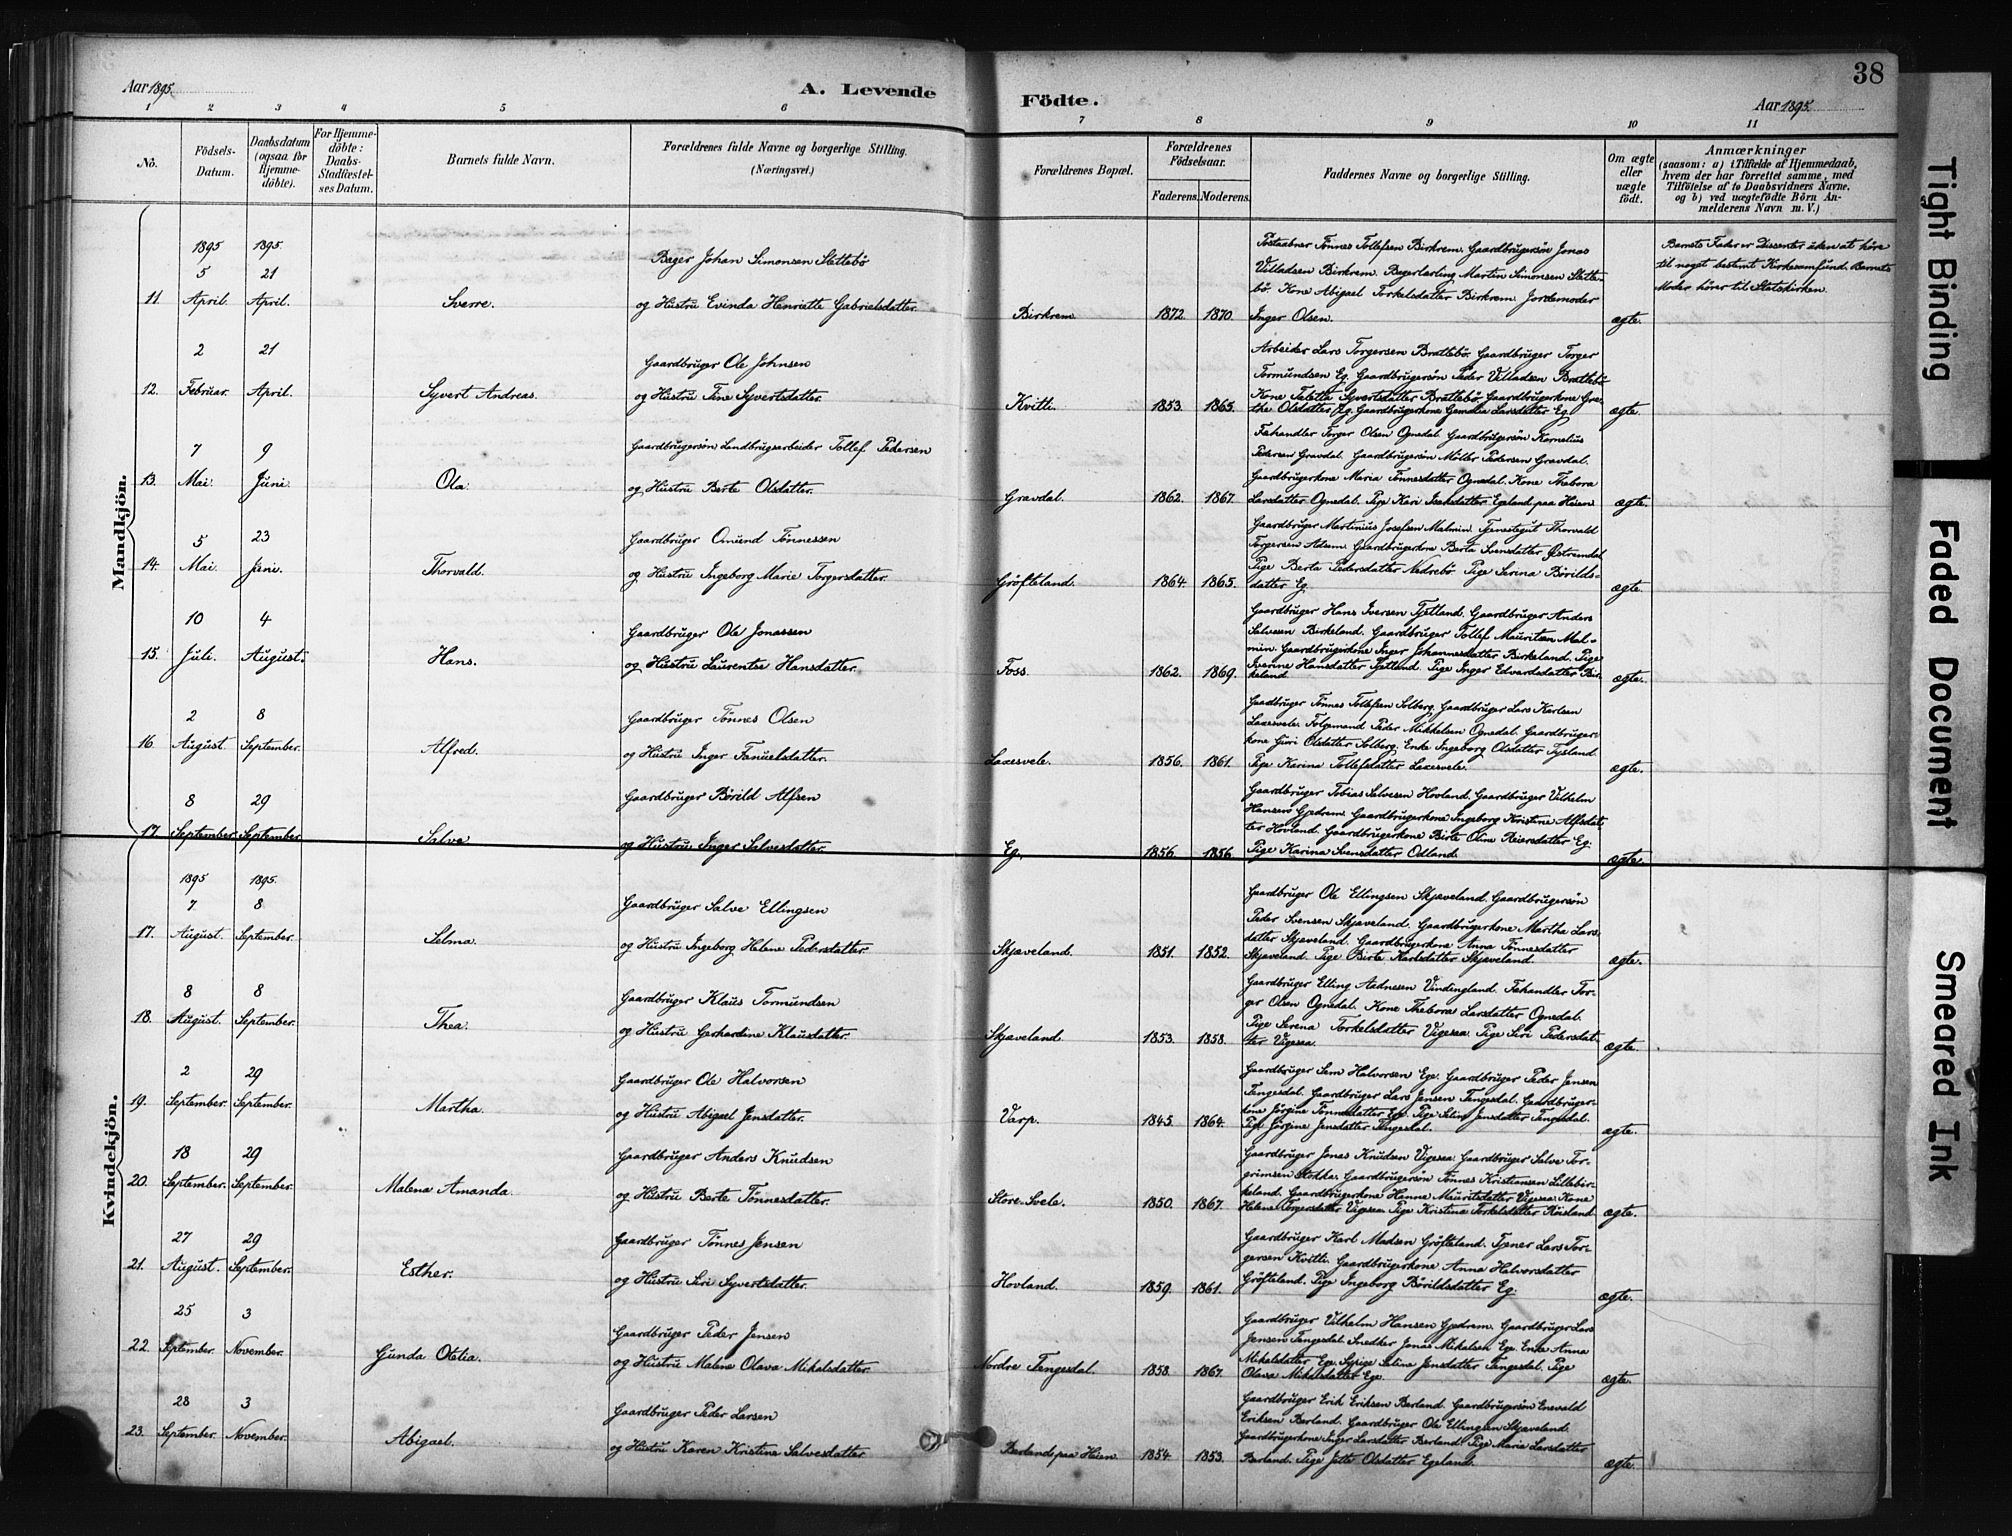 Aar 1895.
A. Levende
Födte.
Aar 1895.
38
1 2 3 4 5 6 7 8 9 10 11
No.
Födsels-Datum.
Daabsdatum (ogsaa for Hjemme-döbte).
For Hjemme-döbte: Daabs-Stadfæstel-ses Datum.
Barnets fulde Navn.
Forældrenes fulde Navne og borgerlige Stilling. (Næringsvei.)
Forældrenes Bopæl.
Forældrenes Födselsaar.
Faderens. Moderens.
Faddernes Navne og borgerlige Stilling.
Om ægte eller uægte födt.
Anmærkninger
(saasom: a) i Tilfælde af Hjemmedaab,
hvem der har forrettet samme, med
Tilföielse af to Daabsvidners Navne,
og b) ved uægtefödte Börn An-
melderens Navn m. V.)
Mandkjön.
1895 1895.
5 21 Bager Johan Simonsen Slettebö
11. April. April. Sverre. og Hustru Evinda Henriette Gabrielsdatter. Birkrem 1872. 1870.
Postaabner Tönnes Tollefsen Birkrem. Gaardbrugersön Jonas
Villadsen Birkrem. Bagerlærling Martin Simonsen Slette-
bö. Kone Abigael Torkelsdatter Birkrem. Jordemoder
Inger Olsen. ægte.
Barnets Fader er Dissenter uden at höre
til noget bestemt Kirkesamfund. Barnets
Moder hörer til Statskirken.
2 21 Gaardbruger Ole Johnsen
12. Februar. April. Syvert Andreas. og Hustru Tine Syvertsdatter. Kvitti. 1853. 1865.
Arbeider Lars Torgersen Brattebö. Gaardbruger Torger
Tormundsen Eg. Gaardbrugersön Peder Villadsen Brattebö
Kone Talette Syvertsdatter Brattebö. Gaardbrugerkone Gre-
the Olsdatter Eg. Gaardbrugerkone Gemalia Larsdatter Eg. ægte.
7 9 Gaardbrugersön Landbrugsarbeider Tollef Pedersen
13. Mai. Juni. Ola. og Hustru Berte Olsdatter. Gravdal. 1862. 1867.
Fæhandler Torger Olsen Ognedal. Gaardbrugersön Kornelius
Pedersen Gravdal. Gaardbrugersön Möller Pedersen Gravdal.
Gaardbrugerkone Maria Tönnesdatter Ognedal. Kone Thebora
Larsdatter Ognedal. Pige Kari Isaksdatter Egeland paa Heien ægte.
5 23 Gaardbruger Omund Tönnessen
14. Mai. Juni. Thorvald. og Hustru Ingeborg Marie Torgersdatter. Gröfteland. 1864. 1865.
Gaardbruger Martinius Josefsen Malmin. Tjenestegut Thorvald
Torgersen Adsem. Gaardbrugerkone Berta Svensdatter Østremdal
Pige Berta Pedersdatter Nedrebö. Pige Serina Börilds-
datter Eg. ægte.
10 4 Gaardbruger Ole Jonassen
15. Juli. August. Hans. og Hustru Laurentse Hansdatter. Foss. 1862. 1869.
Gaardbruger Hans Iversen Tjetland. Gaardbruger Anders
Salvesen Birkeland. Gaardbruger Tollef Mauritsen Mal-
min. Gaardbrugerkone Inger Johannesdatter Birkeland. Pige
Iverine Hansdatter Tjetland. Pige Inger Edvardsdatter Bir-
keland. ægte.
2 8 Gaardbruger Tönnes Olsen
16. August. September. Alfred. og Hustru Inger Fanuelsdatter. Laxesvele. 1856. 1861.
Gaardbruger Tönnes Tollefsen Solberg. Gaardbruger Lars Karlsen
Laxesvele. Folgemand Peder Mikkelsen Ognedal. Gaardbruger-
kone Guri Olsdatter Solberg. Enke Ingeborg Olsdatter Tysland
Pige Karina Tollefsdatter Laxesvele. ægte.
8 29 Gaardbruger Börild Alfsen
17. September. September. Salve. og Hustru Inger Salvesdatter. Eg. 1856. 1856.
Gaardbruger Tobias Salvesen Hovland. Gaardbruger Vilhelm
Hansen Gjedrem. Gaardbrugerkone Ingeborg Kristine Alfsdat-
ter Hovland. Gaardbrugerkone Birte Oline Reiersdatter Eg.
Pige Karina Svensdatter Odland. ægte.
Kvindekjön.
1895 1895.
7 8 Gaardbruger Salve Ellingsen
17. August. September. Selma. og Hustru Ingeborg Helene Pedersdatter. Skjæveland. 1851. 1852.
Gaardbruger Ole Ellingsen Skjæveland. Gaardbrugersön
Peder Svensen Skjæveland. Gaardbrugerkone Martha Lars-
datter Skjæveland. Gaardbrugerkone Anna Tönnesdatter
Skjæveland. Pige Birte Karlsdatter Skjæveland. ægte.
8 8 Gaardbruger Klaus Tormundsen
18. August. September. Thea. og Hustru Gerhardine Klausdatter. Skjæveland. 1853. 1858.
Gaardbruger Elling Aadnesen Vindingland. Fæhandler Tor-
ger Olsen Ognedal. Kone Thebora Larsdatter Ognedal.
Pige Serena Torkelsdatter Vigesaa. Pige Siri Pedersdat-
ter Vigesaa. ægte.
2 29 Gaardbruger Ole Halvorsen
19. September. September. Martha. og Hustru Abigael Jensdatter. Varp. 1845. 1864.
Gaardbruger Sem Halvorsen Ege. Gaardbruger Peder Jensen
Tengesdal. Gaardbruger Lars Jensen Tengesdal. Gaardbruger-
kone Jörgine Tönnesdatter Ege. Pige Seline Jensdatter Tengesdal.
Pige Jörgine Jensdatter Tengesdal. ægte.
18 29 Gaardbruger Anders Knudsen
20. September. September. Malena Amanda. og Hustru Berte Tönnesdatter. Store-Svele. 1850. 1867.
Gaardbruger Jonas Knudsen Vigesaa. Gaardbruger Salve Tor-
grimsen Stokka. Gaardbrugersön Tönnes Kristensen Lillebir-
keland. Gaardbrugerkone Hanne Mauritsdatter Vigesaa. Kone
Helene Torgersdatter Vigesaa. Pige Kristina Torkelsdatter Röisland ægte.
27 29 Gaardbruger Tönnes Jensen
21. August. September. Esther. og Hustru Siri Syvertsdatter. Hovland. 1859. 1861.
Gaardbruger Karl Madsen Gröfteland. Tjener Lars Tor-
gersen Kvitti. Gaardbrugerkone Anna Halvorsdatter
Gröfteland. Pige Ingeborg Börildsdatter Eg. ægte.
25 3 Gaardbruger Peder Jensen
22. September. November. Gunda Otetia. og Hustru Malene Olava Mikalsdatter. Nordre Tengesdal. 1858. 1867.
Gaardbruger Vilhelm Hansen Gjedrem. Gaardbruger Lars
Jensen Tengesdal. Snedker Jonas Mikalsen Ege. Enke Anna
Mikalsdatter Ege. Sypige Seline Jensdatter Tengesdal. Pige
Olava Mikalsdatter Ege. ægte.
28 3 Gaardbruger Peder Larsen
23. September. November. Abigael. og Hustru Karen Kristine Salvesdatter. Berland paa Heien. 1854. 1853.
Gaardbruger Erik Eriksen Berland. Gaardbrugersön Enevald
Eriksen Berland. Gaardbruger Ole Ellingsen Skjæveland.
Gaardbrugerkone Inger Larsdatter Berland. Pige Maria Larsdatter
Berland. Pige Jette Olsdatter Egeland. ægte.
Tight Binding
Faded Document
Smeared Ink